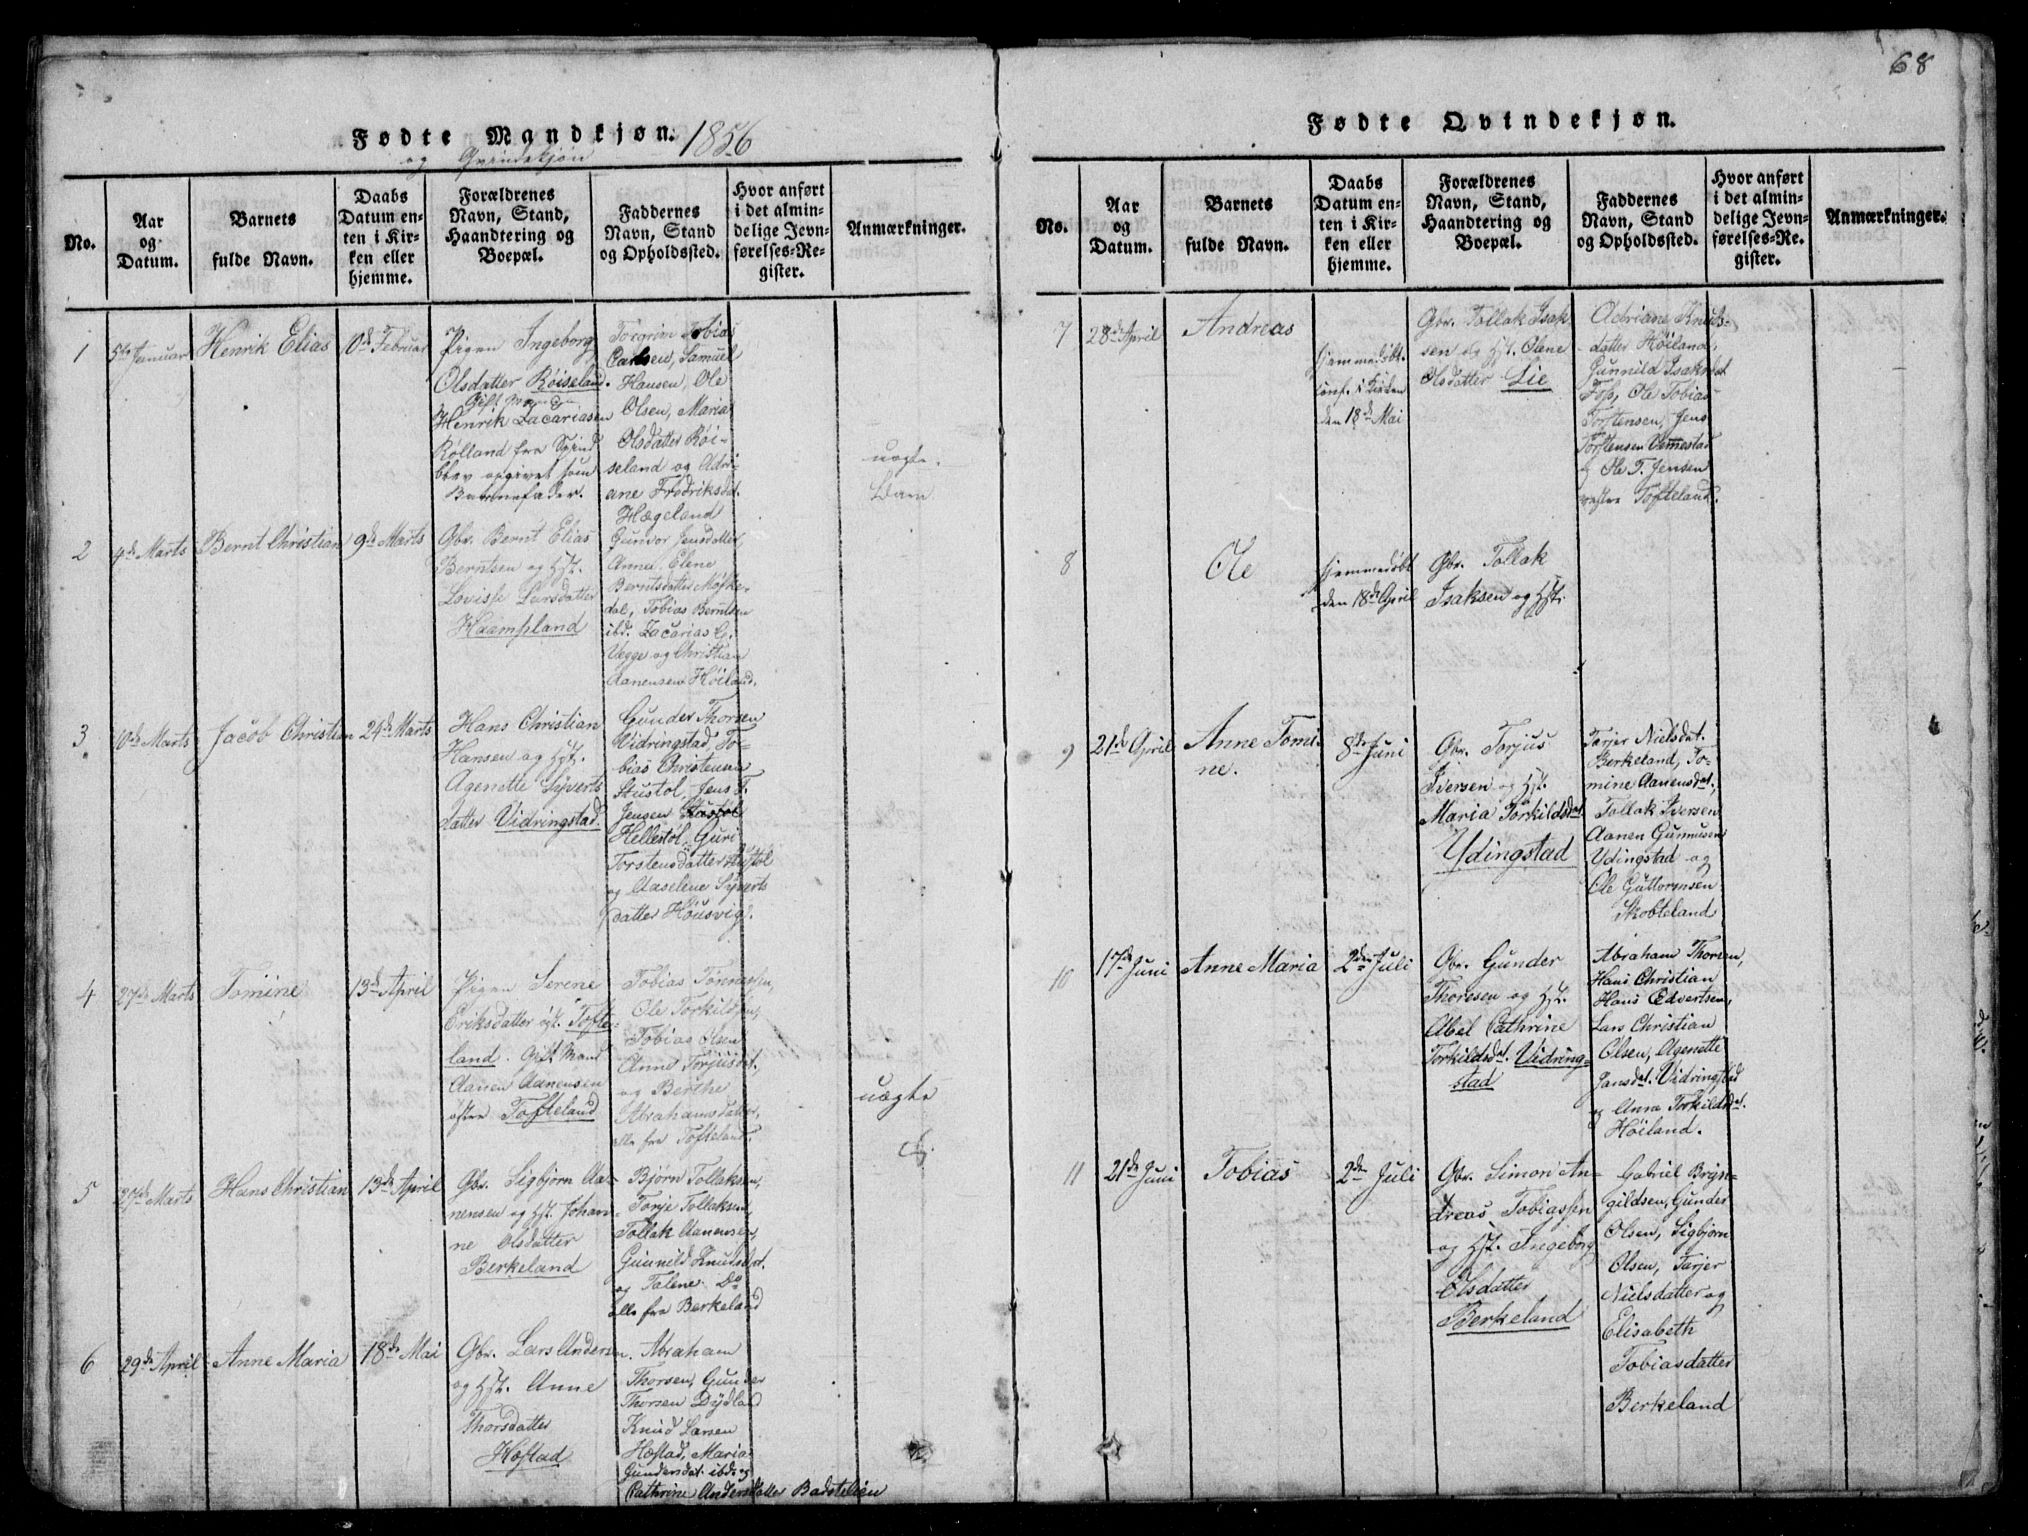 68
Fødte Mandkjøn. 1856
og Qvindekjøn
No.
Aar
og
Datum.
Barnets
fulde Navn.
Daabs
Datum en-
ten i Kir-
ken eller
hjemme.
Forældrenes
Navn, Stand,
Haandtering og
Boepæl.
Faddernes
Navn, Stand
og Opholdssted.
Hvor anført
i det almin-
delige Jevn-
førelses-Re-
gister.
Anmærkninger.
1
5te Januar
Henrik Elias
Februar
Pigen Ingeborg
Olsdatter Røiseland.
Gift Mand
Henrik Zacariasen
Rølland fra Spind
blev opgivet som
Barnefader.
Torgrim Tobias
Carlsen, Samuel
Hansen, Ole
Olsen, Maria
Olsdatter Røi-
seland og Adri-
ane Fredriksdat.
Hægeland
uægte.
Barn
2
4de Marts
Bernt Christian
9de Marts
Gbr. Bernt Elias
Berntsen og Hst.
Lovisse Larsdatter
Haampland
Gunvor Jensdatter,
Anne Elene
Berntsdatter Møske-
dal, Tobias Berntsen
ibd. Zacarias
Vegge og Christian
Aanensen Høiland.
3
10de Marts
Jacob Christian
24de Marts
Hans Christian
Hansen og Hst.
Agenette Syverts
datter Vidringstad.
Gunder Thorsen
Vidringstad, To-
bias Christensen
Stustøl, Jens T.
Jensen
Hellestøl, Guri
Torstensdatter
og Aaselene Syverts
datter Høusvig.
4
27de Marts
Tomine
13de April
Pigen Serene
Eriksdatter øst. Tofte-
land. Gift Mand
Aanen Aanensen
østre Tofteland
Tobias Tønnesen,
Ole Torkildsen,
Tobias Olsen
Anne Torjusdat.
og Berthe
Abrahamsdatter,
alle fra Tofteland.
uægte
5
27de Marts
Hans Christian
13de April
Gbr. Sigbjørn Aa-
nensen og Hst. Johan-
ne Olsdatter
Berkeland
Bjørn Tollaksen,
Torje Tollaksen,
Tollak Aanensen,
Gunneld Knudsdat.
og Talene Do
alle fra Berkeland
6
29de April
Anne Maria
18de Mai
Gbr. Lars Andersen
og Hst. Anne
Thorsdatter
Høstad
Abraham
Thorsen, Gunder
Thorsen Dydland
Knud Larsen
Høstad, Maria
Gundersdat. ibd. og
Cathrine Andersdatter Badstelien
Fødte Qvindekjøn.
No.
Aar
og
Datum.
Barnets
fulde Navn.
Daabs
Datum en-
ten i Kir-
ken eller
hjemme.
Forældrenes
Navn, Stand,
Haandtering og
Boepæl.
Faddernes
Navn, Stand
og Opholdssted.
Hvor anført
i det almin-
delige Jevn-
førelses-Re-
gister.
Anmærkninger.
7
28de April
Andreas
hjemmedøbt.
conf. i Kirken
den 18de Mai
Gbr. Tollak Isak
sen og Hst. Olene
Olsdatter Lie
Adriane Knuts-
datter Høiland,
Gunnild Isaksdat
Foss, Ole Tobias
Torstensen, Jens
Torstensen Vemestad
og Ole T. Jensen
vestre Tofteland.
8
Ole
hjemmedøbt
den 18de April
Gbr. Tollak
Isaksen og Hst.
9
21de April
Anne Tomi-
ne.
8de Juni
Gbr. Torjus
Iversen og Hst.
Maria Torkildsdat
Ydingstad
Tarjer Nielsdat.
Berkeland, To-
mine Aanensdat.,
Tollak Iversen
Aanen Gunnusen
Ydingstad og
Ole Guttormsen
Skobteland
10
17de Juni
Anne Maria
2den Juli
Gbr. Gunder
Thoresen og Hst.
Abel Cathrine
Torkildsdat. Vidring-
stad
Abraham Thorsen,
Hans Christian
Hans Edvertsen,
Lars Christian
Olsen, Agenette
Jansdat. Vidringstad
og Anna Torkildsdat.
Høiland.
11
21de Juni
Tobias
2den Juli
Gbr. Simon An-
dreas Tobiassen
og Hst. Ingeborg
Olsdatter
Berkeland
Gabriel Bryn-
gildsen, Gunder
Olsen, Sigbjørn
Olsen, Tarjer
Nielsdatter og
Elisabeth
Tobiasdatter
Berkeland